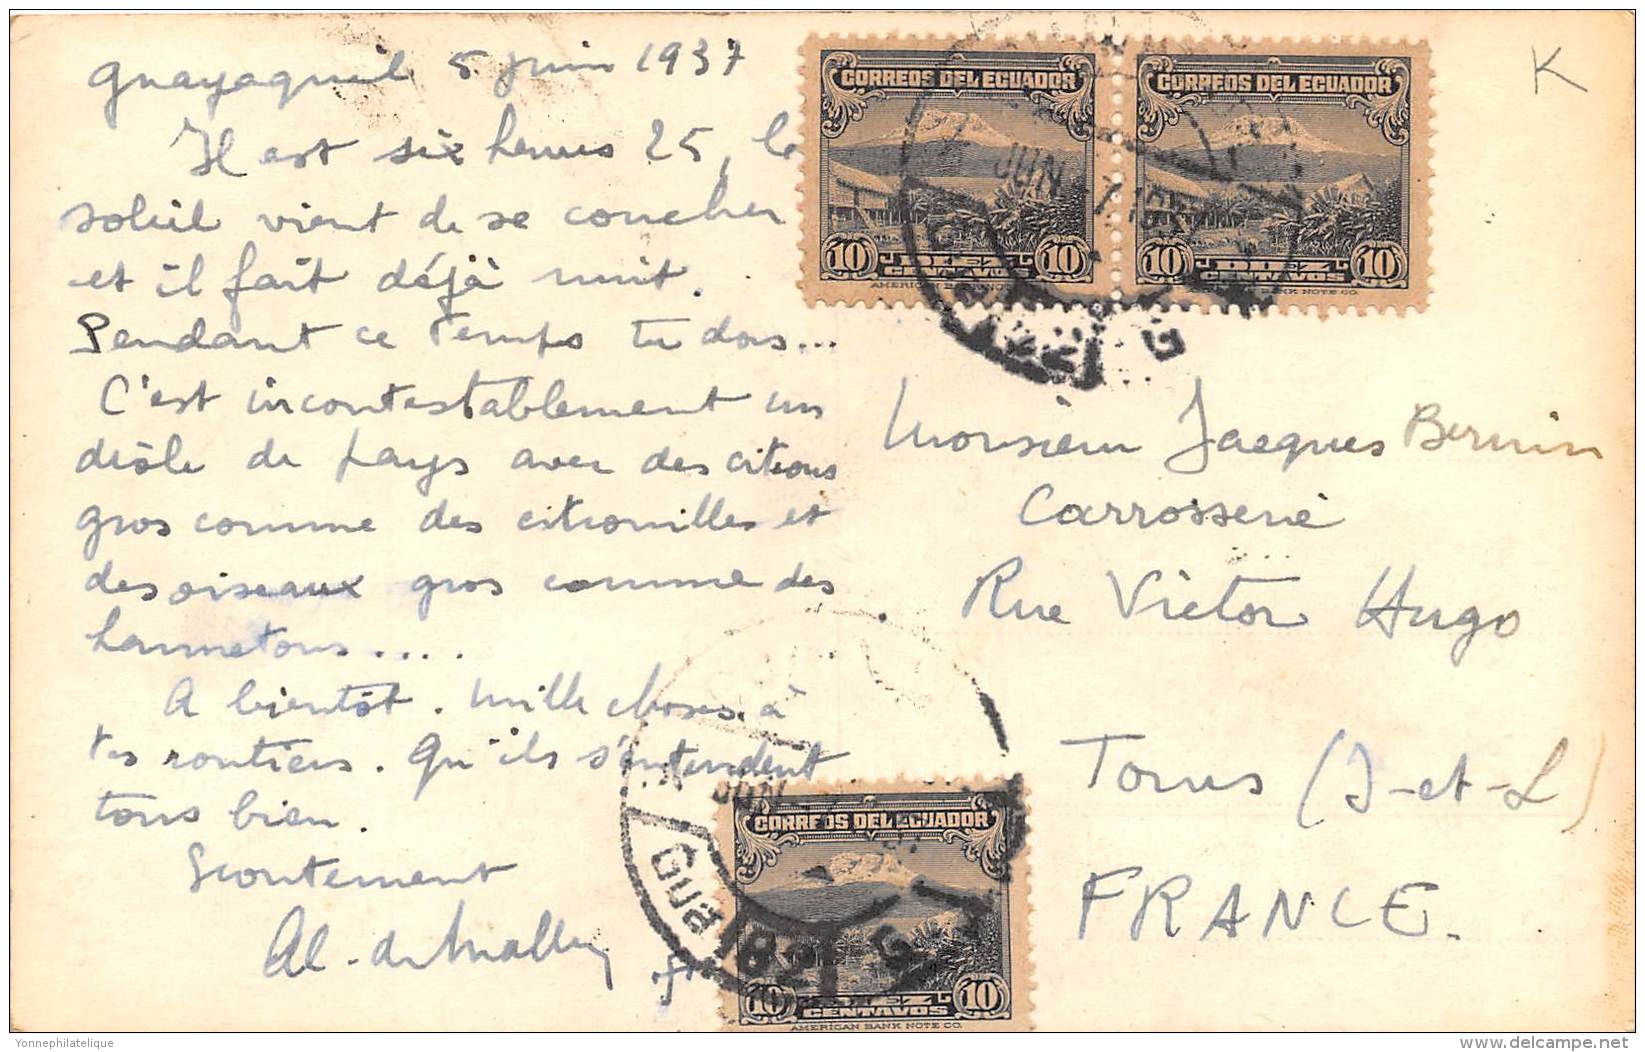 Guayaquil 5 Juin 1937
Il est six heures 25, le
soleil vient de se coucher
et il fait déjà nuit.
Pendant ce temps tu dors...
C'est incontestablement un
drôle de pays avec des citrons
gros comme des citrouilles et
des oiseaux gros comme des
hannetons.....
A bientôt. Mille choses à
tes routiers. Qu'ils s'entendent
tous bien.
Scoutement
Al. de
CORREOS DEL ECUADOR
10 DIEZ CENTAVOS 10
AMERICAN BANK NOTE CO.
CORREOS DEL ECUADOR
10 DIEZ CENTAVOS 10
AMERICAN BANK NOTE CO.
JUN 7 193
K
Monsieur Jacques
Carrosserie
Rue Victor Hugo
Tours (I-et-L)
FRANCE.
JUN
Gua
1821
CORREOS DEL ECUADOR
10 DIEZ CENTAVOS 10
AMERICAN BANK NOTE CO.
Yonnephilatelique
delcampe.net